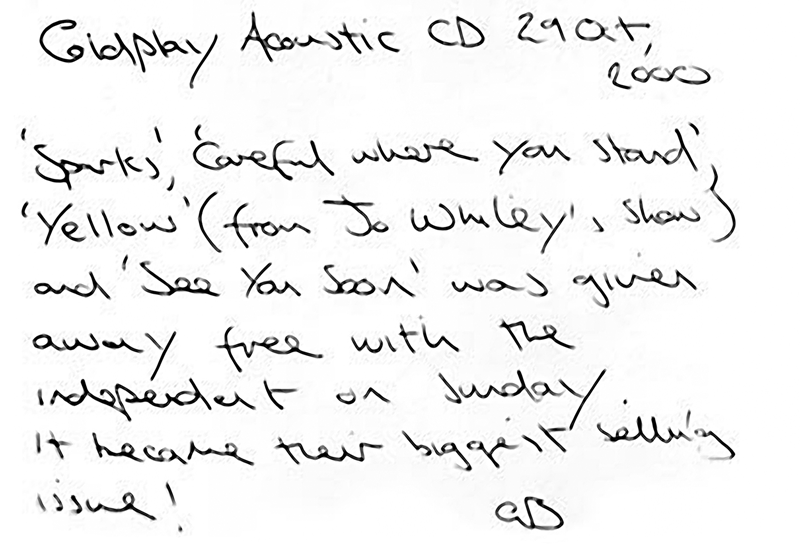 Coldplay Acoustic CD 29 Oct,
2000
'Sparks', 'Careful where you stand',
'Yellow' (from Jo Whiley's show)
and 'See You Soon' was given
away free with the
independent on sunday
It became their biggest selling
issue!